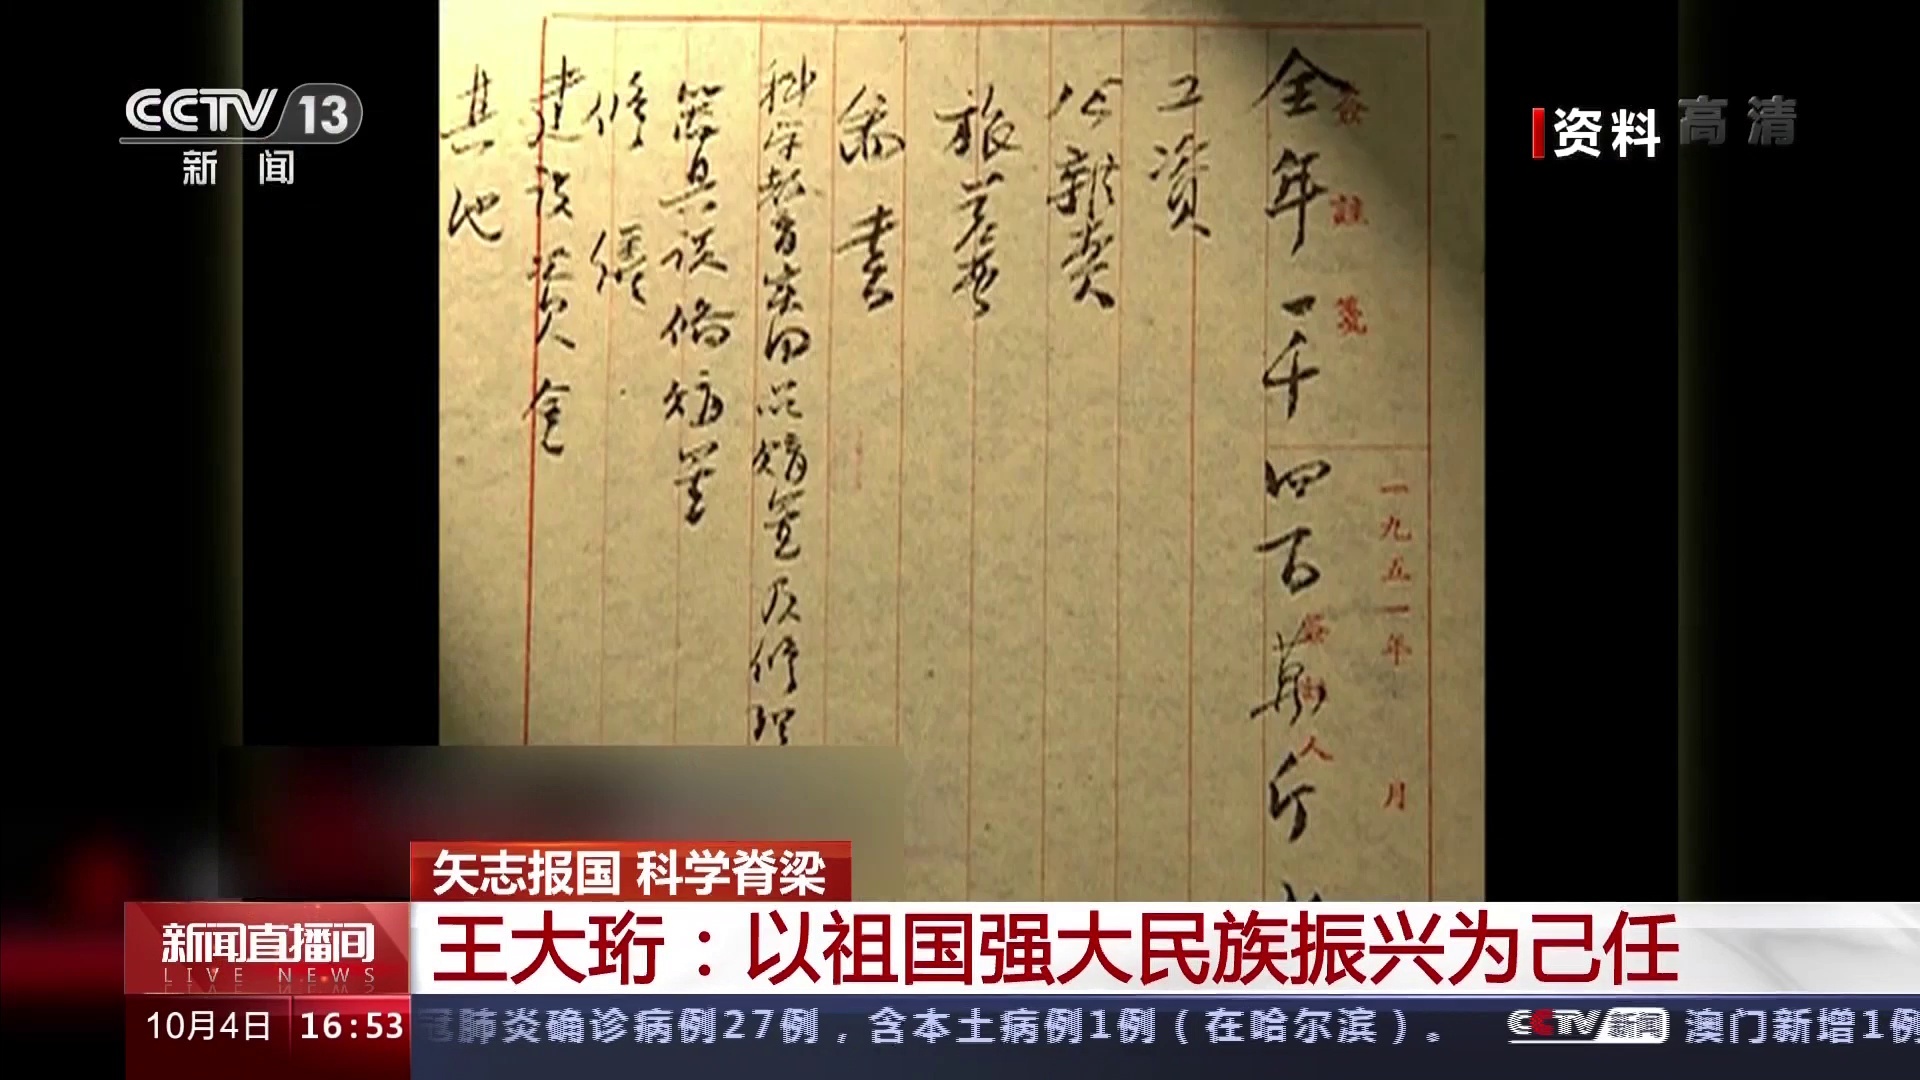 CCTV 13
新闻
资料
高清
全年一千四百萬斤
工资
公雜费
旅差费
圖書
科学教育实用品购置及修理
器具设备购置
修缮
建设资金
其他
一九五一年 月
矢志报国 科学脊梁
王大珩：以祖国强大民族振兴为己任
新闻直播间
LIVE NEWS
10月4日 16:53
冠肺炎确诊病例27例，含本土病例1例（在哈尔滨）。 CCTV新闻 澳门新增1例